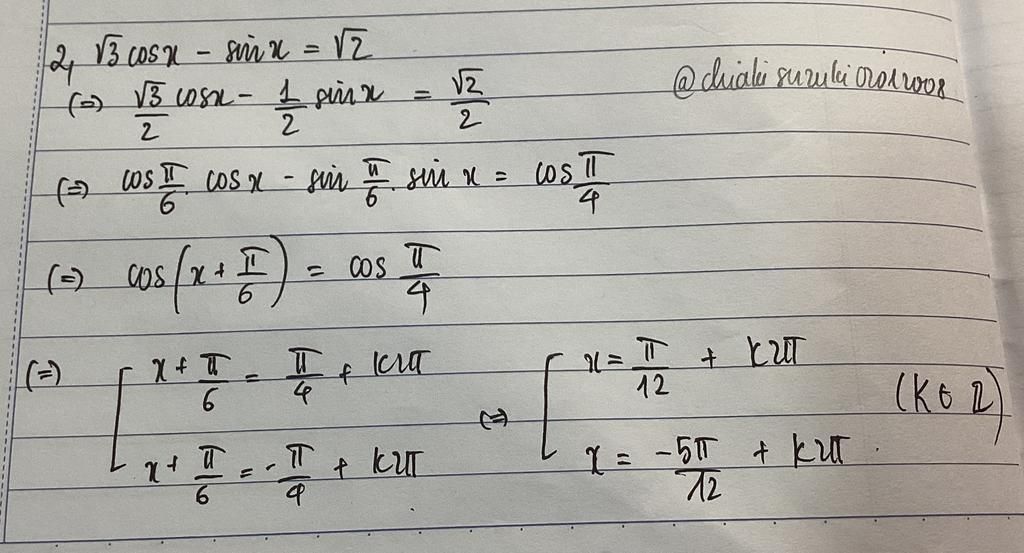 2, √3 cosx - sinx = √2
@chiakisuzuki02012008
(=) √3/2 cosx - 1/2 sinx = √2/2
(=) cos π/6 . cosx - sin π/6 . sin x = cos π/4
(=) cos(x + π/6) = cos π/4
(=) [ x + π/6 = π/4 + k2π (=) [ x = π/12 + k2π
x + π/6 = -π/4 + k2π x = -5π/12 + k2π . (k ∈ Z)